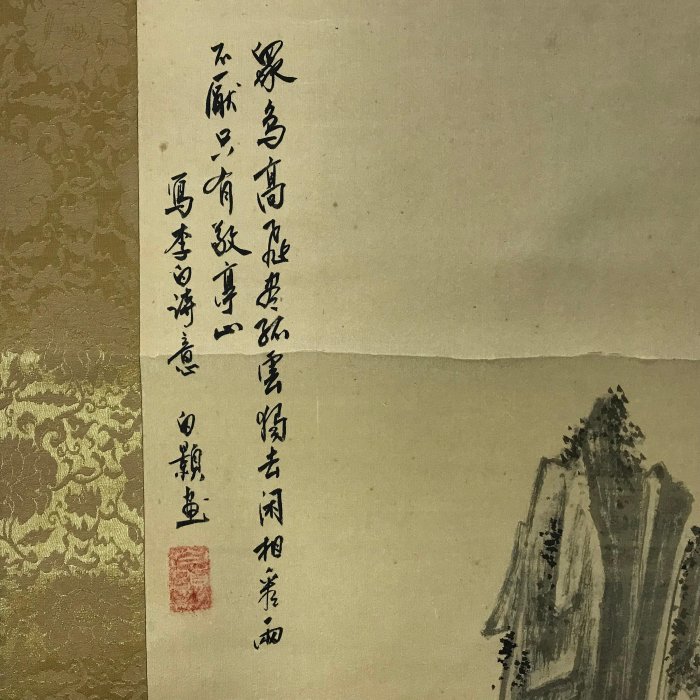 眾鳥高飛盡孤雲獨去闲相看兩
不厭只有敬亭山
寫李白詩意
白顥畫